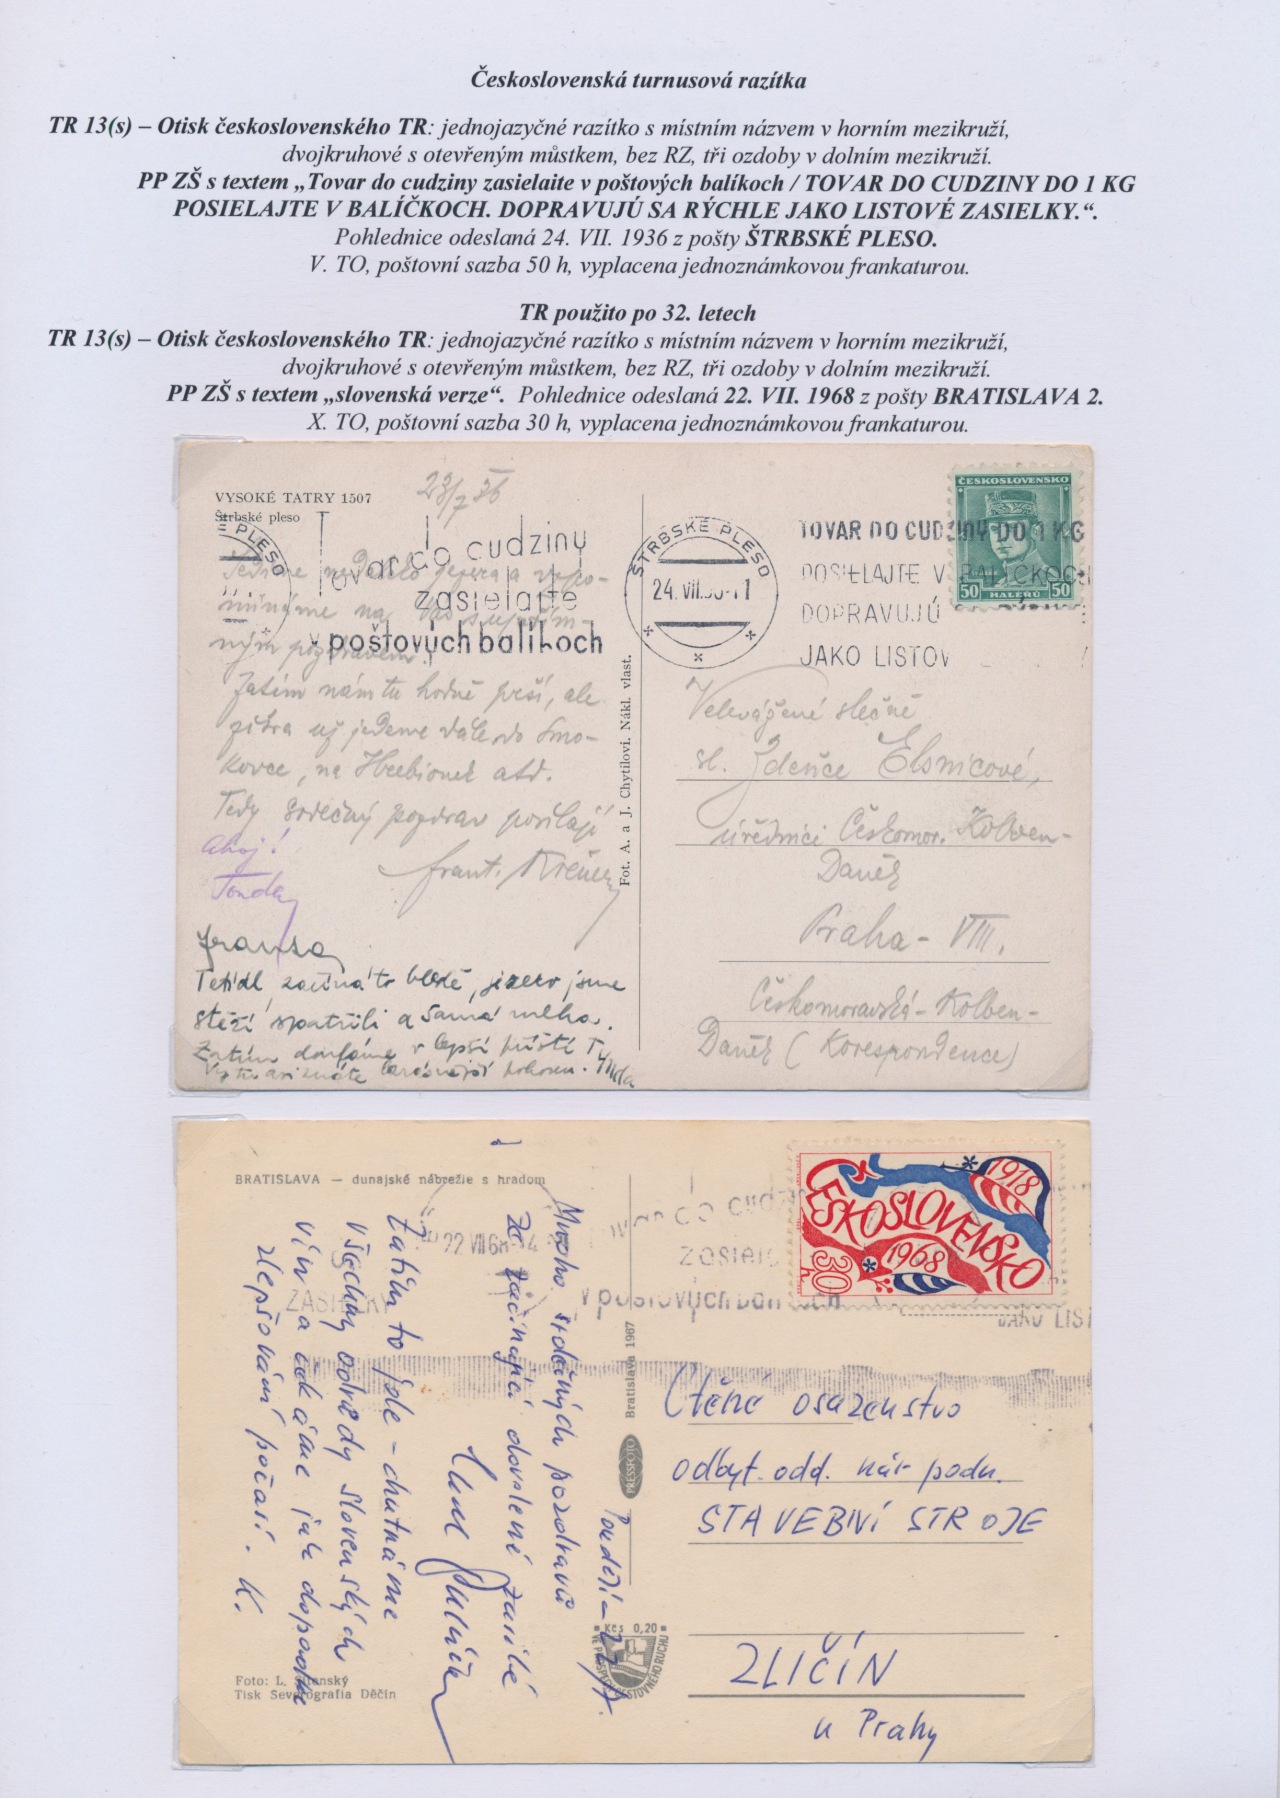 Československá turnusová razítka
TR 13(s) – Otisk československého TR: jednojazyčné razítko s místním názvem v horním mezikruží,
dvojkruhové s otevřeným můstkem, bez RZ, tři ozdoby v dolním mezikruží.
PP ZŠ s textem „Tovar do cudziny zasielaite v poštových balíkoch / TOVAR DO CUDZINY DO 1 KG
POSIELAJTE V BALÍČKOCH. DOPRAVUJÚ SA RÝCHLE JAKO LISTOVÉ ZASIELKY.“.
Pohlednice odeslaná 24. VII. 1936 z pošty ŠTRBSKÉ PLESO.
V. TO, poštovní sazba 50 h, vyplacena jednoznámkovou frankaturou.
TR použito po 32. letech
TR 13(s) – Otisk československého TR: jednojazyčné razítko s místním názvem v horním mezikruží,
dvojkruhové s otevřeným můstkem, bez RZ, tři ozdoby v dolním mezikruží.
PP ZŠ s textem „slovenská verze“. Pohlednice odeslaná 22. VII. 1968 z pošty BRATISLAVA 2.
X. TO, poštovní sazba 30 h, vyplacena jednoznámkovou frankaturou.
VYSOKÉ TATRY 1507
Štrbské pleso
23/7 36
É PLESO
Tovar do cudziny
zasielajte
v poštových balíkoch
ŠTRBSKÉ PLESO
24. VII.
TOVAR DO CUDZINY DO 1 KG
POSIELAJTE V BALÍČKOCH
DOPRAVUJÚ
JAKO LISTOV
ČESKOSLOVENSKO
50 HALÉŘŮ 50
Zatím nám tu hodně prší, ale
zítra už jedeme dále do Smo-
kovce, na Hrebionek atd.
Tedy srdečný pozdrav posílají
Ahoj!
Tonda
frant.
Franta
začíná to bledě, jezero jsme
stěží spatřili a samá mlha.
Zatím doufáme v lepší příští
Fot. A. a J. Chytilovi. Nákl. vlast.
Velevážené slečně
sl. Zdeňce Elsnicové,
úřednici Českomor. Kolben-
Daněk
Praha - VIII.
Českomoravská-Kolben-
Daněk (Korespondence)
BRATISLAVA — dunajské nábrežie s hradom
22 VII 68
do cudzi
zasiela
v poštových balíkoch
ZASIELKY
JAKO LIST
ČESKOSLOVENSKO
1918
1968
30
h
Mnoho srdečných pozdravů
ze začínající dovolené
Zatím to jde - chutnáme
všechny odrůdy slovenských
vín a čekáme jak dopadne
zlepšování počasí. K.
Pondělí - 22/7.
Bratislava 1967
PRESSFOTO
Kčs 0,20
VE PROSPĚCH CESTOVNÉHO RUCHU
Foto: L.
Tisk Severografia Děčín
Ctěné osazenstvo
odbyt. odd. nár. podn.
STAVEBNÍ STROJE
ZLIČÍN
u Prahy